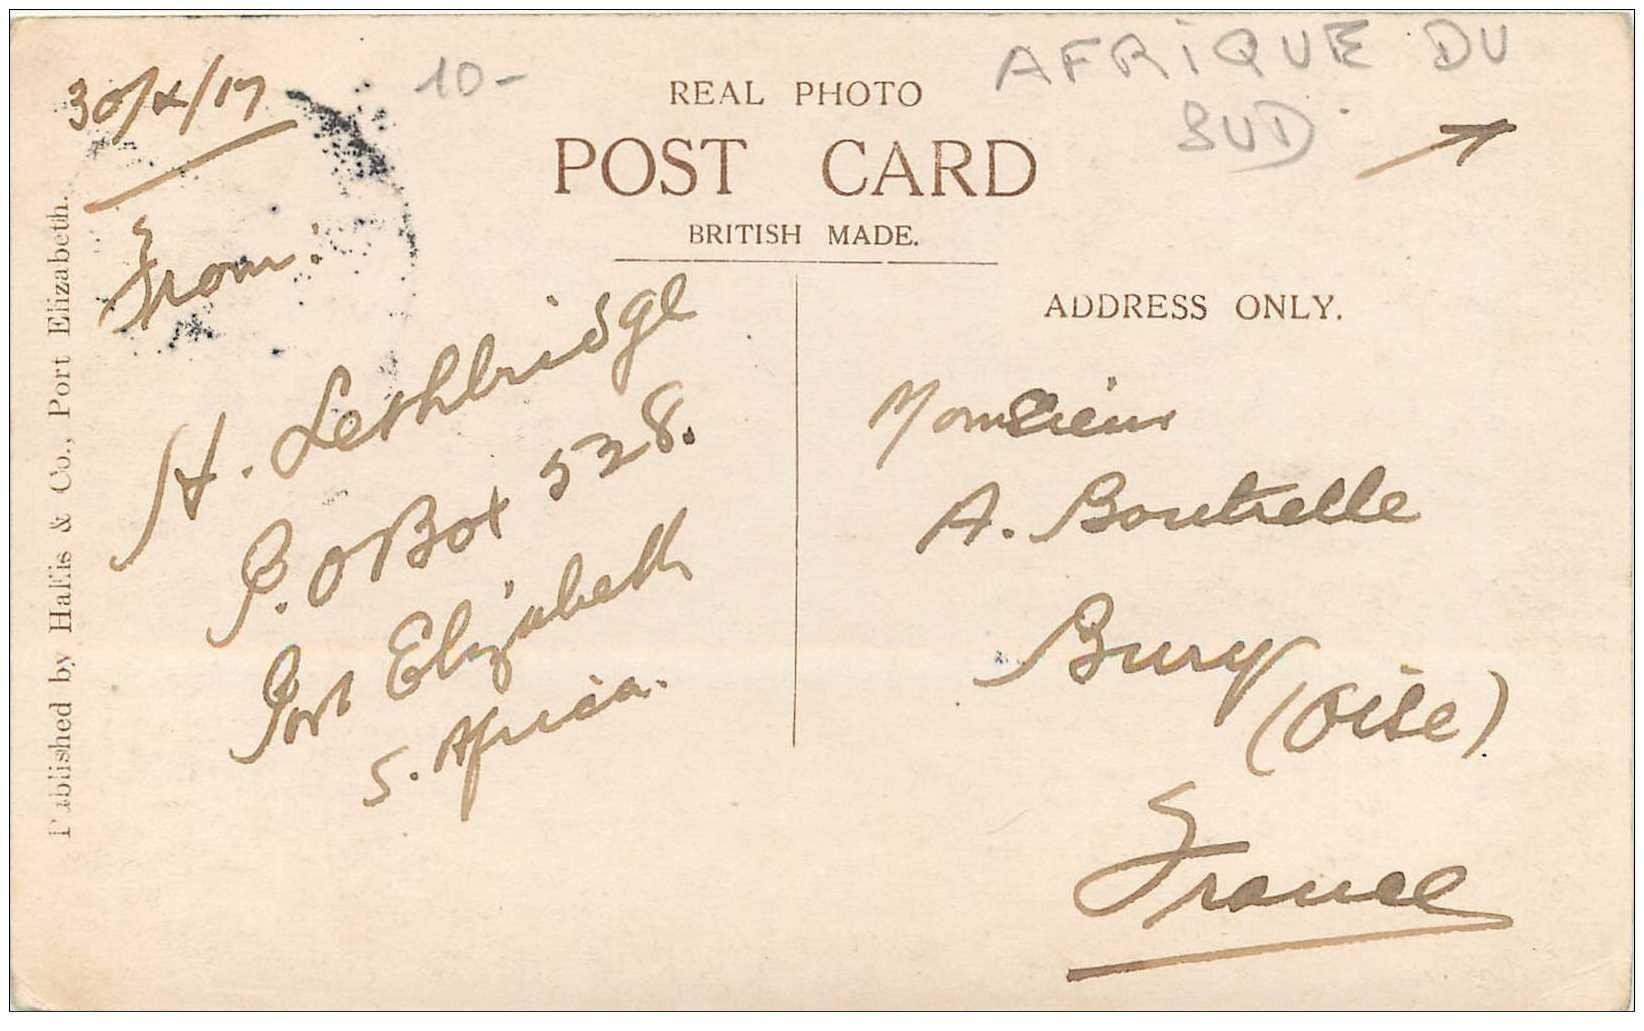 30/X/17
10-
AFRiQUE DU
SUD
REAL PHOTO
POST CARD
BRITISH MADE.
Published by Hallis & Co., Port Elizabeth.
From:
H. Lethbridge
P.O Box 528.
Port Elizabeth
S. Africa.
ADDRESS ONLY.
Monsieur
A. Boutrelle
Bury
(Oise)
France